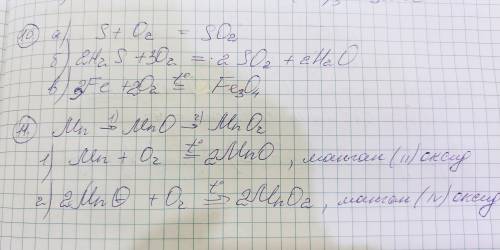 10. а) S + O₂ = SO₂
б) 2H₂S + 3O₂ = 2SO₂ + 2H₂O
в) 3Fe + 2O₂ t°= Fe₃O₄
11. Mn 1)→ MnO 2)→ MnO₂
1) Mn + O₂ t°= 2MnO, манган (II) оксид
2) 2MnO + O₂ t°→ 2MnO₂, манган (IV) оксид